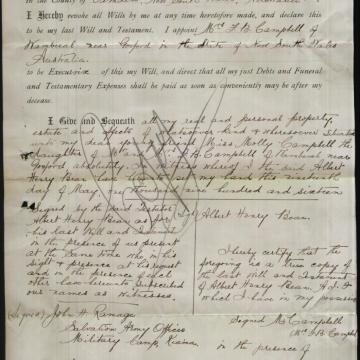 I Hereby revoke all Wills by me at any time heretofore made, and declare this
to be my last Will and Testament. I appoint Mrs F. B. Campbell of
Wamberal near Gosford in the State of New South Wales
Australia.
to be Executrix of this my Will, and direct that all my just Debts and Funeral
and Testamentary Expenses shall be paid as soon as conveniently may be after my
decease.
I Give and Bequeath all my real and personal property,
estate and effects of whatsoever kind & wheresoever situated
unto my dear friend Miss Molly Campbell the
daughter of Mr and Mrs F. B. Campbell of Wamberal near
Gosford absolutely. In witness whereof I the said Albert
Henry Bean have set my hand this
day of May one thousand nine hundred and sixteen
Signed by the said Testator
Albert Henry Bean as for
his last Will and Testament
in the presence of us present
at the same time who in his
sight & presence at his request
and in the presence of each
other have hereunto subscribed
our names as witnesses.
Sgd Albert Henry Bean.
I hereby certify that the
foregoing is a true copy of
the last Will and Testament
of Albert Henry Bean,
which I have in my possession
Signed M. Campbell
Mrs F. B. Campbell
(Signed) John H. Ramage
Salvation Army Officer
Military Camp, Kiama
in the presence of